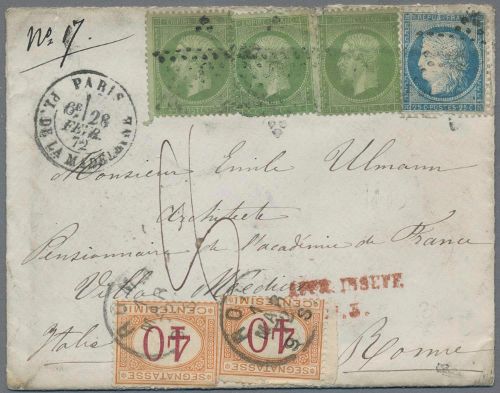 No. 17
PARIS
6E 28
FEVR.
72
PL. DE LA MADELEINE
REPUB. FRANC.
Monsieur Emile Ulmann
Architecte
Pensionnaire de l'académie de France
Villa Médicis
AFFR. INSUFF.
Italie
Rome
ROMA
MAR
40
CENTESIMI
SEGNATASSE
40
CENTESIMI
SEGNATASSE